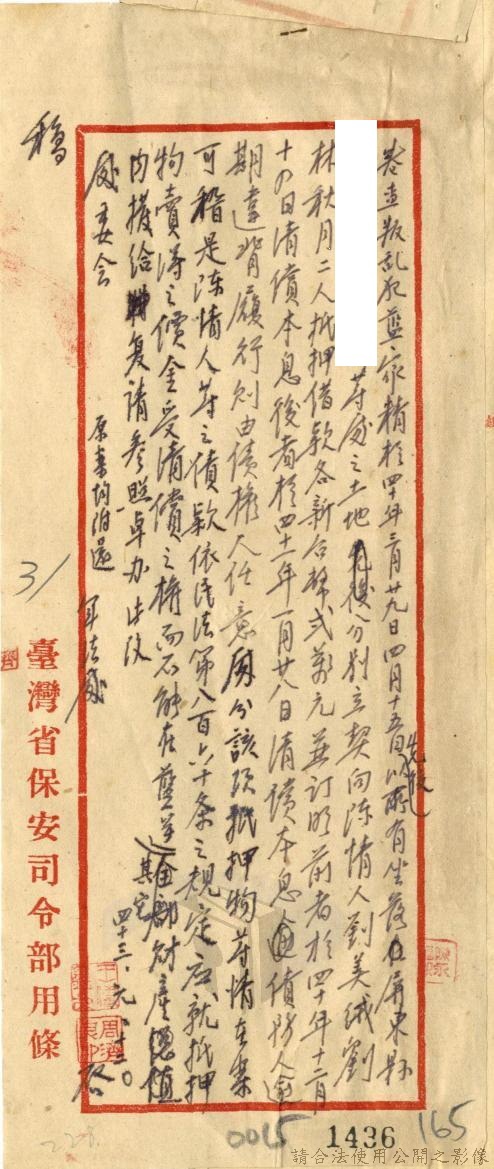 卷查叛乱犯蓝家精於四十年三月廿九日四月十五日先後以所有坐落屏東縣
等處之土地分别立契向陈情人劉美绒劉
林秋月二人抵押借款各新台幣弍萬元並订明前者於四十年十二月
十四日清償本息後者於四十一年一月廿八日清償本息债務人逾
期違背履行则由债權人任意處分該項抵押物等情在案
可稽是陈情人等之债款依民法第八百六十条之規定应就抵押
物賣得之價金受清償之權而不能在蓝等其它全部財產總值
内撥給复請参照卓办此致
處委会
原案均附還
軍法處
四十三、元、十三。
啓
稿
3/
臺灣省保安司令部用條
0015
1436
165
請合法使用公開之影像